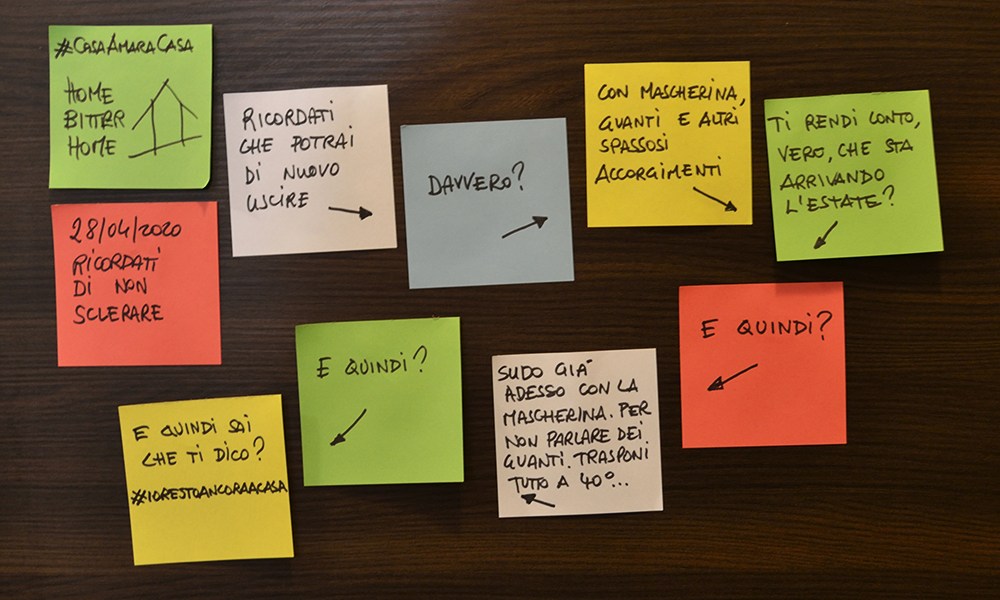 #CASAAMARACASA
HOME
BITTER
HOME
28/04/2020
RICORDATI
DI NON
SCLERARE
RICORDATI
CHE POTRAI
DI NUOVO
USCIRE
DAVVERO?
CON MASCHERINA,
GUANTI E ALTRI
SPASSOSI
ACCORGIMENTI
TI RENDI CONTO,
VERO, CHE STA
ARRIVANDO
L'ESTATE?
E QUINDI?
SUDO GIÀ
ADESSO CON LA
MASCHERINA. PER
NON PARLARE DEI
GUANTI. TRASPONI
TUTTO A 40°...
E QUINDI?
E QUINDI SAI
CHE TI DICO?
#IORESTOANCORAACASA